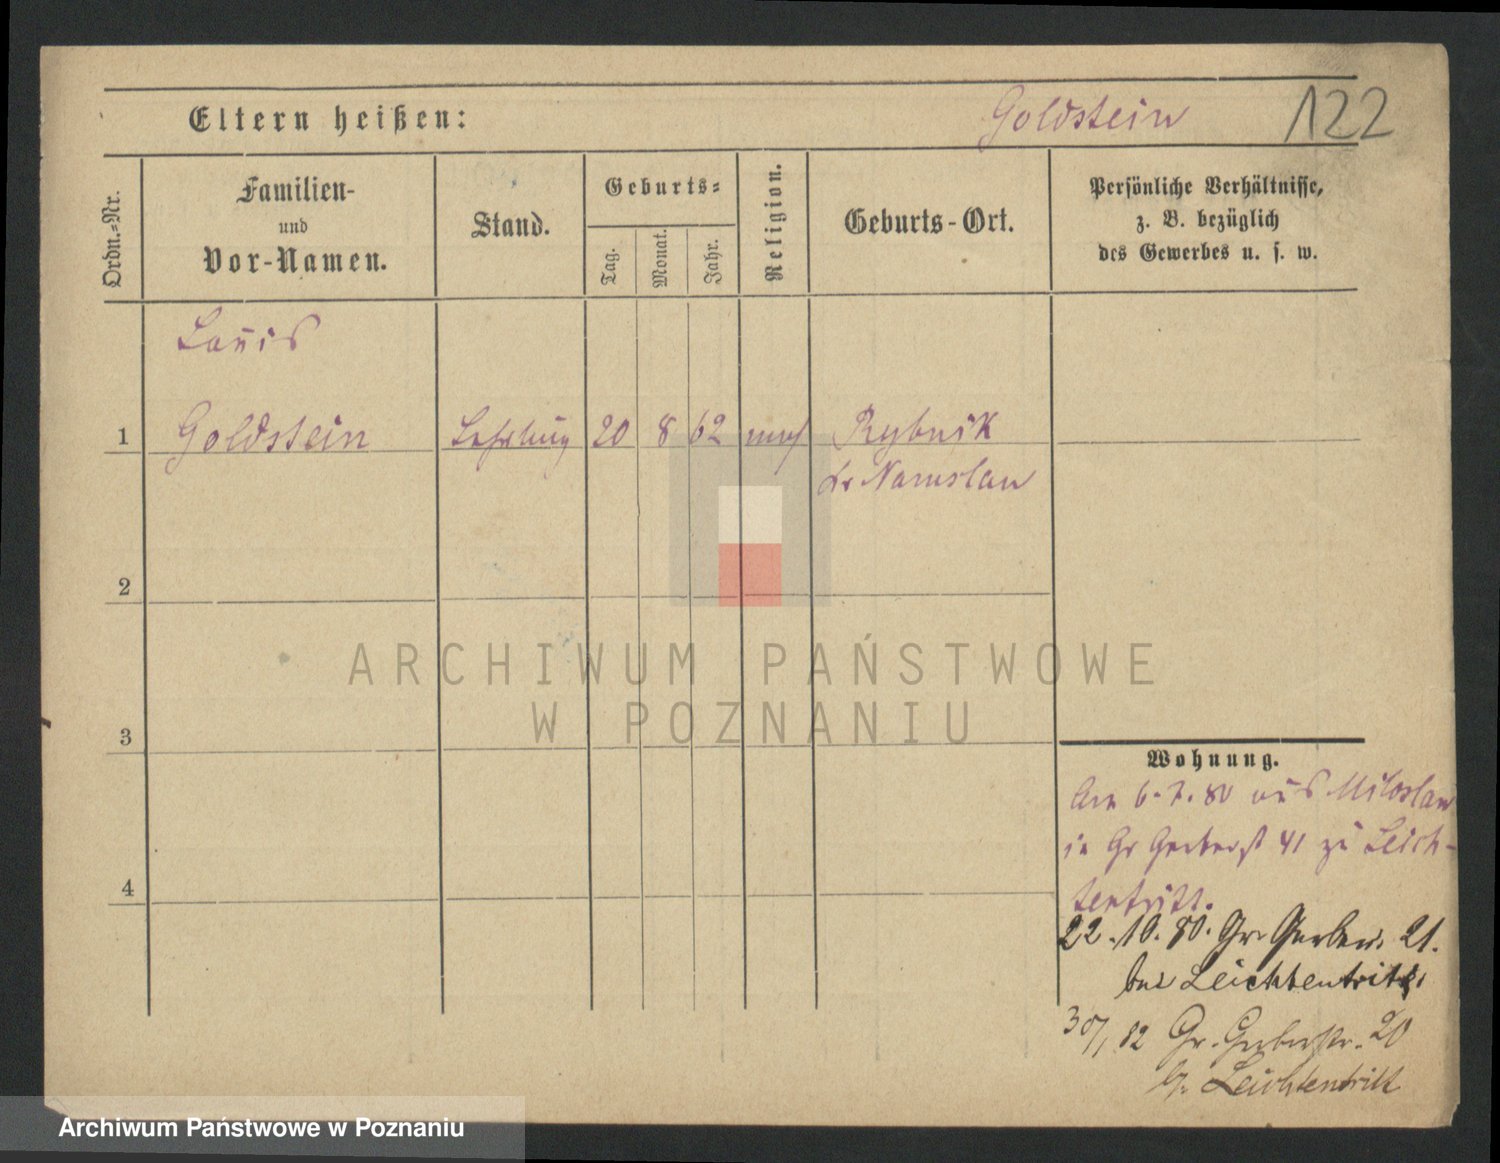 Eltern heißen: Goldstein 122
Ordn.-Nr.
Familien-
und
Vor-Namen.
Stand.
Geburts-
Tag.
Monat.
Jahr.
Religion.
Geburts-Ort.
Persönliche Verhältnisse,
z. B. bezüglich
des Gewerbes u. s. w.
Louis
1 Goldstein Lehrling 20 8 62 mos Rybnik
Kr Namslau
2
3
4
Wohnung.
Am 6.7.80 aus Miloslaw
in Gr Gerberst 41 zu Leich-
tentritt.
22.10.80. Gr. Gerber. 21.
bei Leichtentritt.
82 Gr. Gerberstr. 20
Leichtentritt
ARCHIWUM PAŃSTWOWE
W POZNANIU
Archiwum Państwowe w Poznaniu